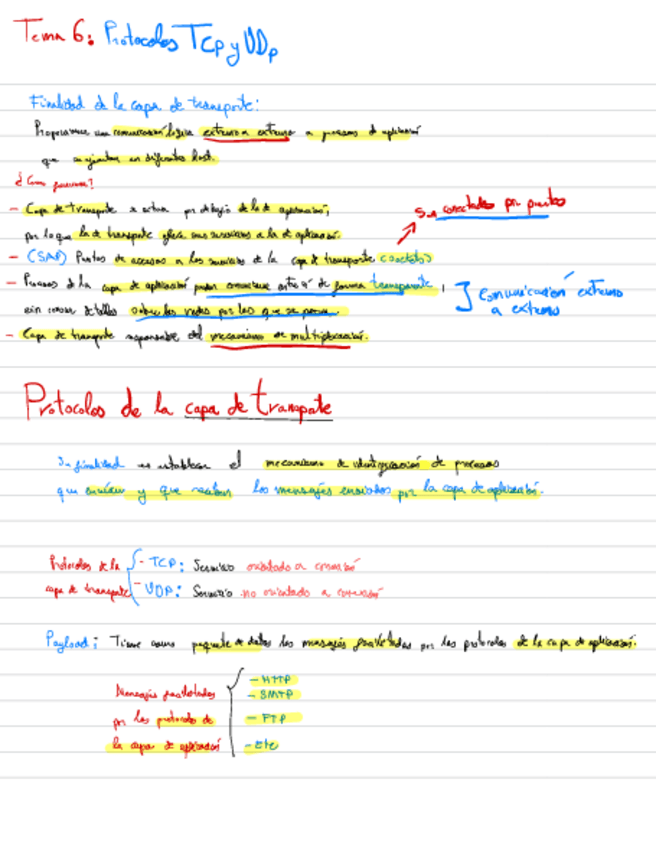 Tema 6: Protocolos TCP y UDP
Finalidad de la capa de transporte:
Proporcionar una comunicación lógica extremo a extremo a procesos de aplicación
que se ejecutan en diferentes host.
¿Cómo funciona?
- Capa de transporte se actua por debajo de la de aplicación,
por lo que la de transporte ofrece sus servicios a la de aplicación.
Son conectados por puertos
- (SAP) Puntos de accesos a los servicios de la capa de transporte
- Procesos de la capa de aplicación pueden comunicarse entre sí de forma transparente,
sin conocer detalles sobre las redes por las que se
] Comunicación extremo
a extremo
- Capa de transporte responsable del mecanismo de multiplexación.
Protocolos de la capa de transporte
Su finalidad es establecer el mecanismo de identificación de procesos
que envían y que reciben los mensajes enviados por la capa de aplicación.
Protocolos de la
capa de transporte
- TCP: Servicio orientado a conexión
- UDP: Servicio no orientado a conexión
Payload: Tiene como paquete de datos los mensajes por los protocolos de la capa de aplicación.
Mensajes
por los protocolos de
la capa de aplicación
- HTTP
- SMTP
- FTP
- Etc